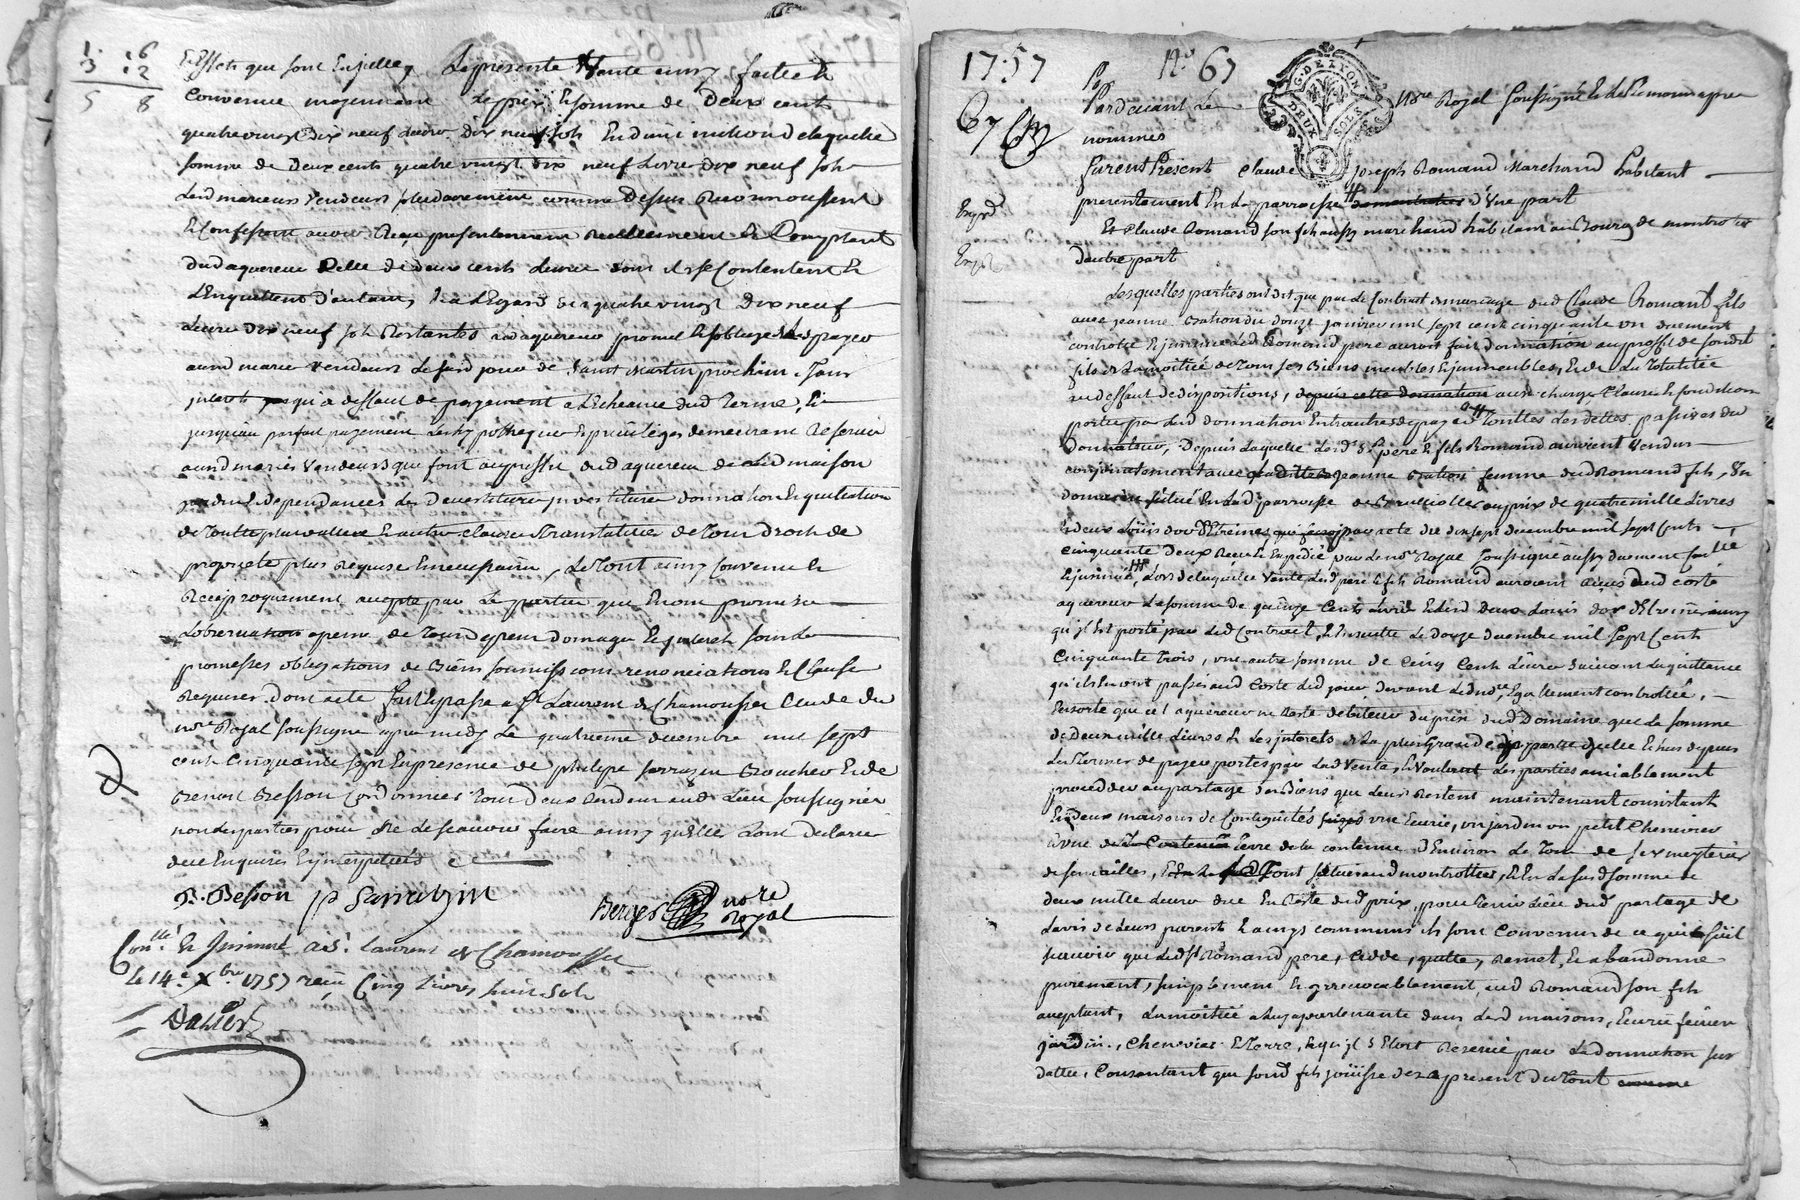 1. 6
3 : 2
5 8
Effets que sont en icelles La presente Vente ainsy faitte et
convenue moyennant le prix et somme de Deux cents
quatre vingt dix neuf Livres dix neuf sols En diminution de laquelle
somme de Deux cents quatre vingt dix neuf Livres dix neuf sols
Lesd mariers Vendeurs solidairement comme Dessus Reconnoissent
et Confessent avoir Reçu presentement reellement et Comptant
dud aquereur celle de deux cents Livres dont ils se Contentent et
L'Enquittent d'autant, Et a L'Egard des quatre vingt Dix neuf
Livres dix neuf sols Restantes led aquereur promet et s'oblige de les payer
auxd mariés vendeurs Le jour de saint Martin prochain sans
interets jusqu'a deffaut de payement a L'echeance dud Terme, Et
jusqu'au parfait payement Les hypotheque et privileges demeurant Reservés
auxd mariés Vendeurs que font au profit dud aquereur de lad maison
jardin et dependances les Devestiture investiture donnation et quittation
de Toutte plus vallüe et autre clauses Translatives de Tous droits de
propriété plus Requise et necessaire, Le Tout ainsy convenu et
Reciproquement accepté par Les parties qui En ont promis
L'observation a peine de Tous depens Domages et interets sous les
promesses obligations de Biens soumissions renonciations et Clause
Requises. Dont acte fait et passé a St Laurent de Chamousset Etude du
nore Royal soussigné apres midy Le quatrieme decembre mil sept
cent cinquante sept En presence de philipe sarrazin Boucher et de
Benoit Besson Cordonnier Tous deux demeurant aud Lieu soussignés
non les parties pour ne le scavoir faire ainsy qu'elles L'ont declaré
de ce Enquises et interpellées
B. Besson p Sarrazin Berger nore
Royal
Conllé Et Insinué à St. Laurent de Chamousset
le 14e Xbre 1757 reçu Cinq Livres huit sols
1757 No 67
67
G. DE LYON
DEUX SOLS
Pardevant Le Nore Royal soussigné et les temoins apres
nommés
furent Présent Claude Joseph Romand Marchand habitant
presentement En La parroisse d'Une part
Et Claude Romand son fils aussy marchand habitant au Bourg de montrottier
d'autre part
Expd
Lesquelles parties ont dit que par Le Contrat de mariage dud Claude Romant fils
avec jeanne du Douze janvier mil sept cent cinquante un duement
controllé et insinué Led Romand pere auroit fait donnation au proffit de sondit
fils de La moitiée de Tous ses Biens meubles et immeubles, Et de La Totalité
au deffaut de dispositions, depuis cette donnation aux charges, clauses et conditions
portées par lad donnation Entr'autres de payer Touttes les dettes passives du
Donnateur, Depuis Laquelle Lesds pere et fils Romand auroient vendu
conjointement avec laditte jeanne femme dud Romand fils, Un
domaine situé En Lad parroisse de au prix de quatre mille Livres
et deux Loüis d'or d'Etreines par acte du dix sept decembre mil sept cents
cinquante Deux Reçu et Expedié par Le nore Royal soussigné aussy duement controllé
et insinué, Lors de laquelle vente Lesd pere et fils Romand auroient reçus dud
aquereur La somme de quinze Cents Livres et Lesd deux Loüis d'or d'Etreines ainsy
qu'il Est porté par Led Contrat, Et Ensuitte Le douze decembre mil Sept Cent
Cinquante Trois, une autre somme de Cinq Cents Livres suivant La quittance
qu'ils En ont passé aud Coste led jour devant Led nore, Egallement controllée,
En sorte que cet aquereur ne Reste debiteur du prix dud Domaine que La somme
de deux mille Livres et Les interets de La plus Grande partie d'icelle Echus depuis
Les Termes de payer portés par Lad Vente, et Voulant Les parties amiablement
proceder au partage des Biens que Leur Restent maintenant consistant
En deux maisons de Contiguités une Ecurie, un jardin un petit Chenevier
et une Terre de la contenüe d'Environ Le Tout de six mesteries
de semailles, Le Tout situé aud montrottier, et En Lad somme de
deux mille Livres due En Reste dud prix, pour Tenir Lieu dud partage de
L'avis de Leurs parents et amys communs ils sont Convenus de ce qui suit
scavoir que Led Sr Romand pere, cedde, quitte, remet, et abandonne
purement, simplement et irrevocablement, aud Romand son fils
acceptant, La moitiée a Luy appartenante dans Lesd maisons, Ecurie fenier
jardin, chenevier et Terre, Et qu'il s'Etoit Reservé par La donnation sus
dattée, Consentant que sond fils joüisse des a present du Tout comme